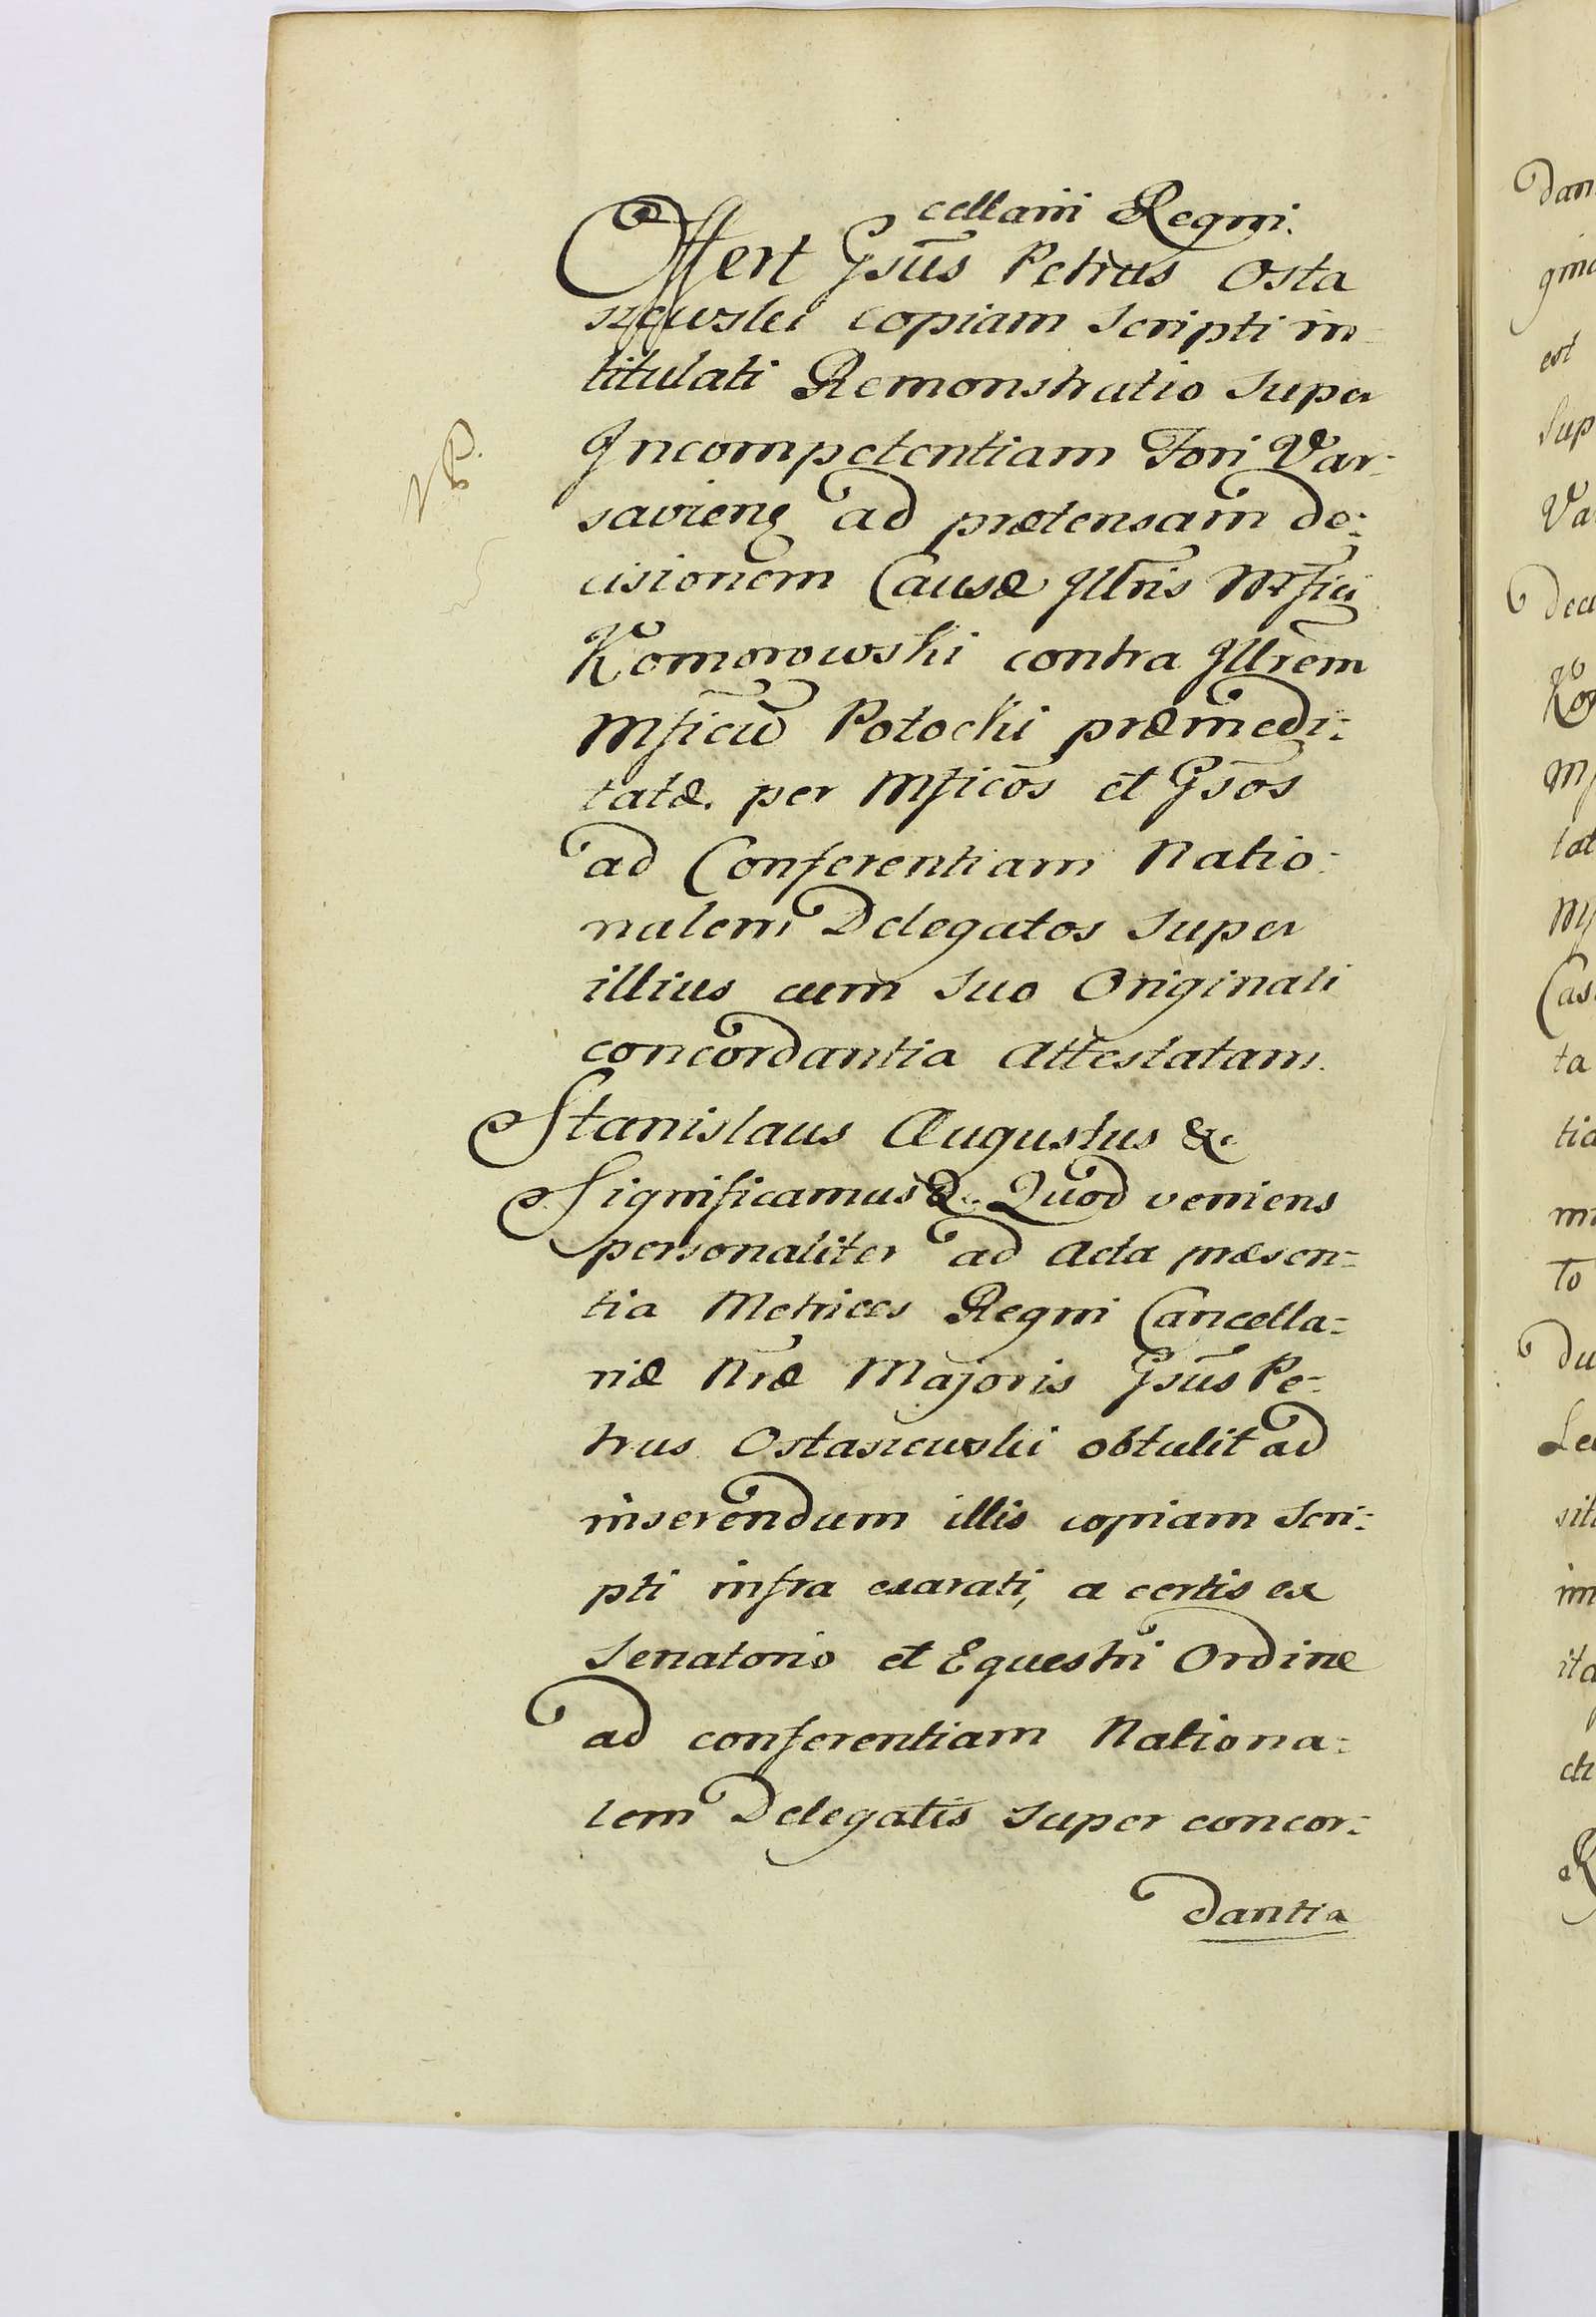 cellarii Regni.
Offert Gsūs Petrus Osta
szewski copiam Scripti in-
titulati Remonstratio super
Incompetentiam Fori Var:
saviens ad prætensam de:
cisionem Causæ Illris Mfici
Komorowski contra Illrem
Mficū Potocki præmedi:
tatæ. per Mficōs et Gsōs
ad Conferentiam Natio:
nalem Delegatos super
illius cum suo Originali
concordantia attestatam.
Stanislaus Augustus &c
Significamus &c. Quod veniens
personaliter ad Acta præsen=
tia Metrices Regni Cancella=
riæ Nræ Majoris Gsūs Pe-
trus Ostaszewski obtulit ad
inserendum illis copiam Scri:
pti infra exarati, a certis ex
Senatorio et Equestri Ordine
ad conferentiam Nationa:
lem Delegatis super concor:
dantia